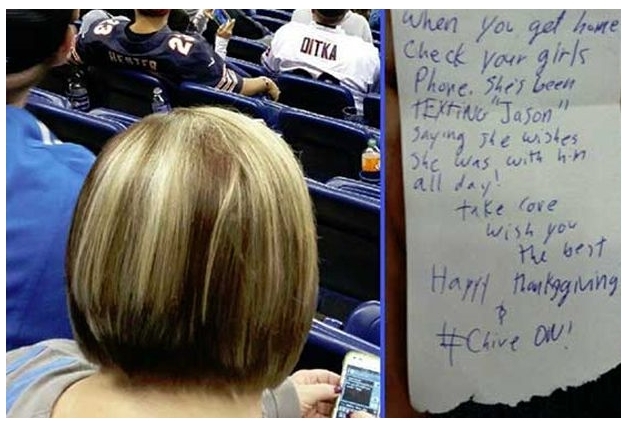 HESTER
23
DITKA
When you get home
Check your girls
Phone. She's been
TEXTING "Jason"
Saying she wishes
She was with him
all day!
take care
wish you
the best
Happy Thanksgiving
&
#Chive ON!